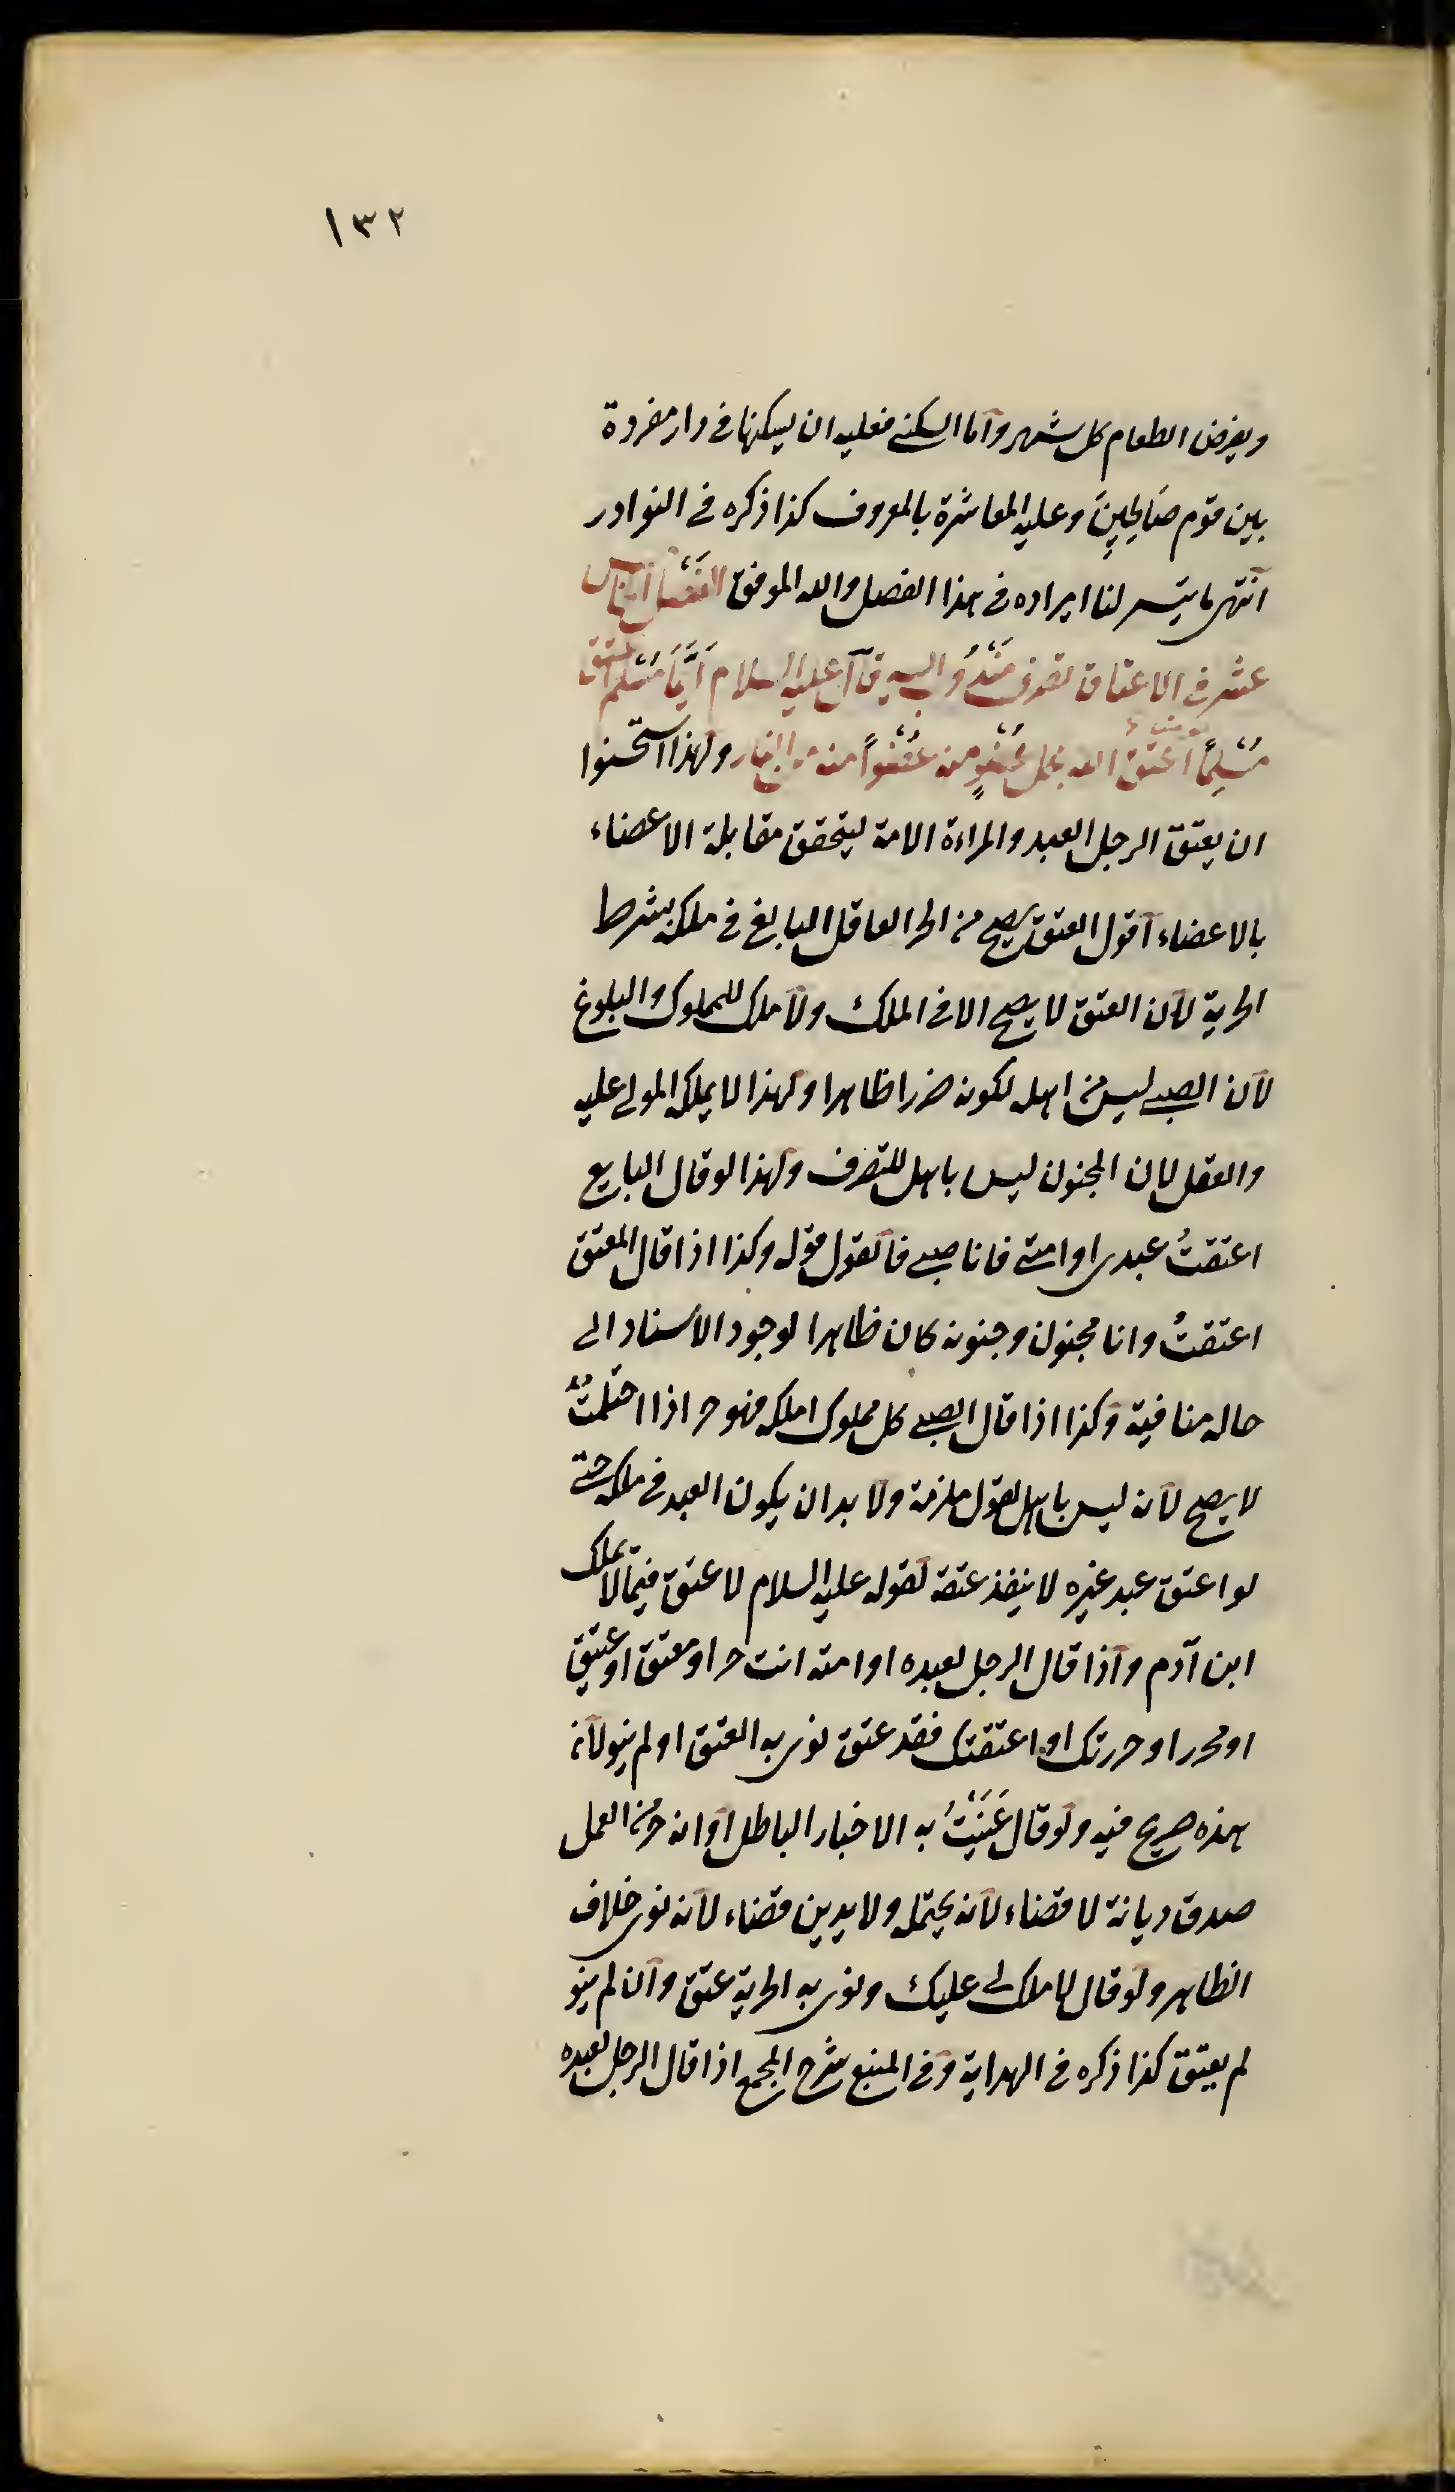 ١٣٢
ويفرض الطعام كل شهر وآما السكنى فعليه ان يسكنها فى دار مفردة
بين قوم صَالِحِينَ وعليه المعاشرة بالمعروف كذا ذكره فى النوادر
آنتهى ما يتسر لنا ايراده فى هذا الفصل والله الموفق الفَصْل الخامس
عشر فى الاعتاق تصرف مَنْدُوب اليه قآل عليه السلام اَيُّمَا مُسْلِم اعتق
مُسْلِماً اَعتق الله بكل عُضْوٍ منه عُضْواً منه من النار ولهذا استحسنوا
ان يعتق الرجل العبد والمراءة الامة ليتحقق مقابلة الاعضاء
بالاعضاء آقول العتق يصح من الحر العاقل البالغ فى ملكه بشرط
الحرية لآن العتق لا يصح الا فى الملك ولآ ملك للمملوك والبلوغ
لآن الصبى ليس من اهله لكونه ضررا ظاهرا ولهذا لا يملكه المولى عليه
والعقل لان المجنون ليس باهل للتصرف ولهذا لو قال البايع
اعتقتُ عبدى او امتى فانا صبى فآلقول قوله وكذا اذا قال المعتق
اعتقتُ وانا مجنون وجنونه كان ظاهرا لوجود الاسناد الى
حاله منافية وكذا اذا قال الصبى كل مملوك املكه فهو حر اذا احتلمتُ
لا يصح لآنه ليس باهل لقول ملزمة ولا بد ان يكون العبد فى ملكه حتى
لو اعتق عبد غيره لا ينفذ عتقه لقوله عليه السلام لا عتق فيمآ لا يملك
ابن آدم وآذا قال الرجل لعبده او امته انت حر او معتق او عتيق
او محرر او حررتك او اعتقتك فقد عتق نوى به العتق او لم ينو لآن
هذه صريح فيه ولو قال عَنَيْتُ به الاخبار الباطل آو انه حر من العمل
صدق ديانة لا قضاء لآنه يحتمله ولا يدين قضاء لآنه نوى خلاف
الظاهر ولو قال لا ملك لى عليك ونوى به الحرية عتق وآن لم ينو
لم يعتق كذا ذكره فى الهداية وفى المنبع شرح المجمع اذا قال الرجل لعبده